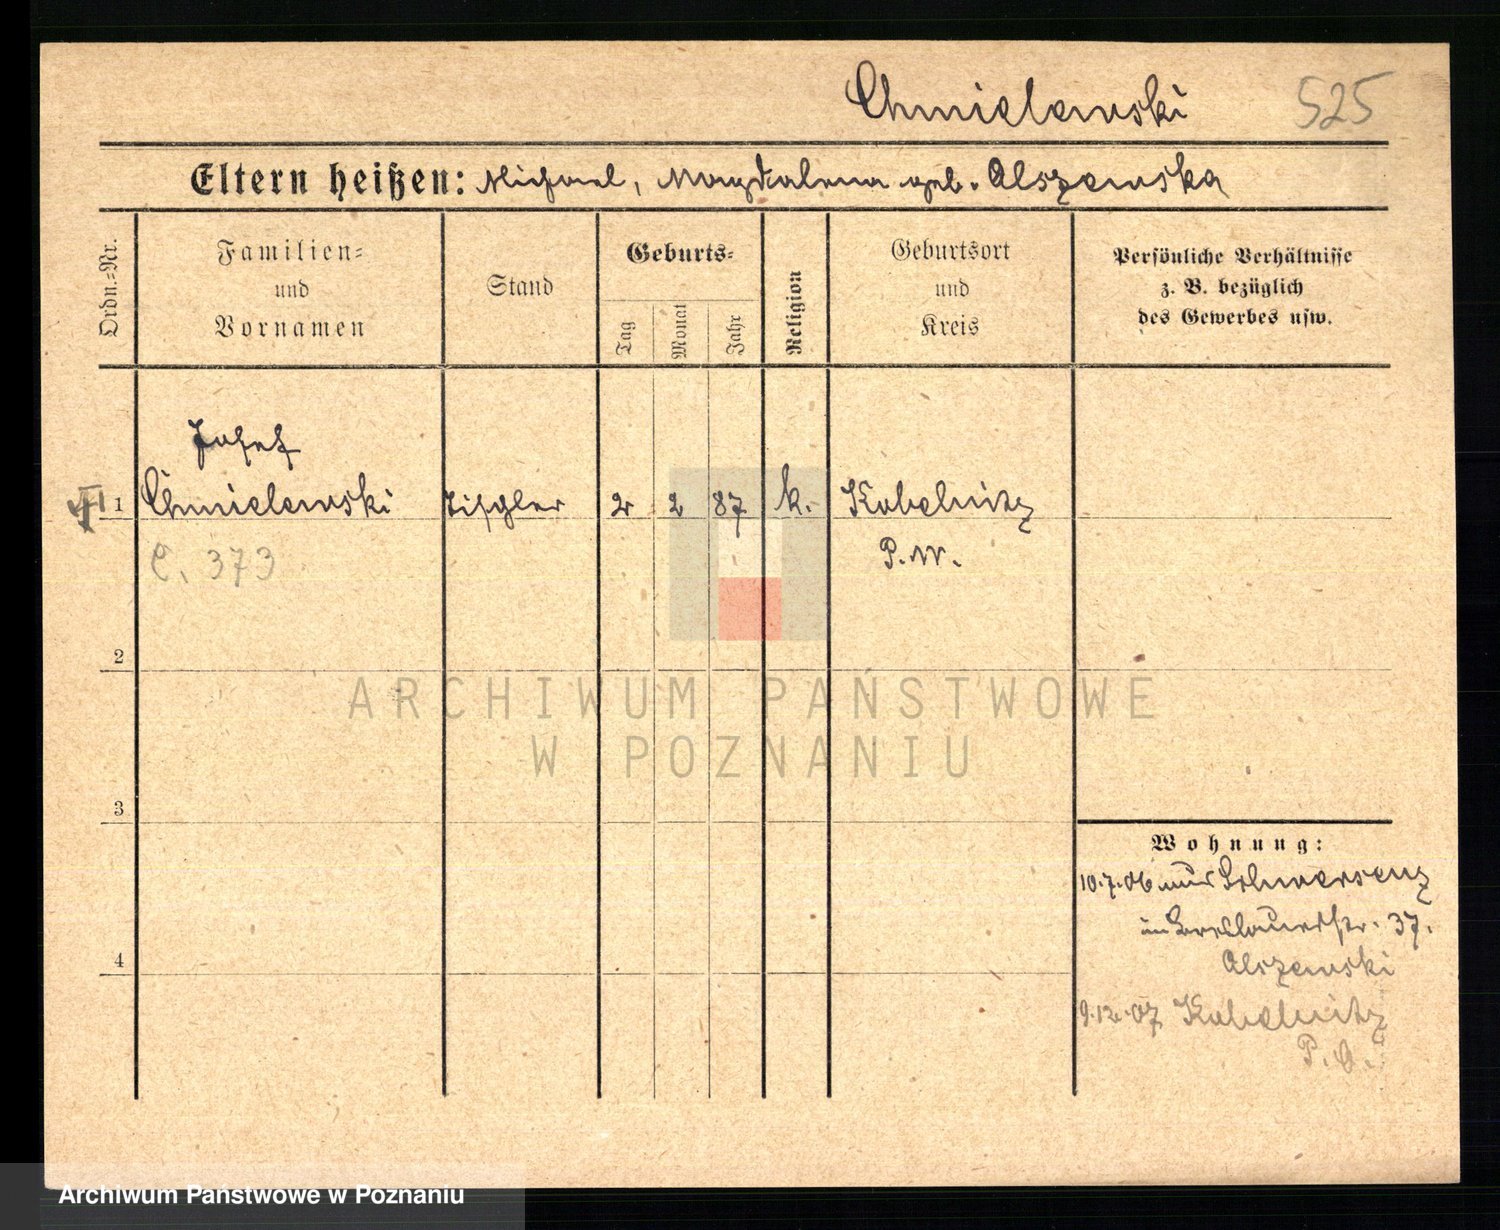 Chmielewski 525
Eltern heißen: Michael, Magdalena geb. Olszewska
Ordn.-Nr.
Familien-
und
Vornamen
Stand
Geburts-
Tag
Monat
Jahr
Religion
Geburtsort
und
Kreis
Persönliche Verhältnisse
z. B. bezüglich
des Gewerbes usw.
Josef
1 Chmielewski Tischler 2 2 87 k. Kobelnitz
P.W.
C. 373
2
ARCHIWUM PAŃSTWOWE
W POZNANIU
3
Wohnung:
10.7.06 aus Schwersenz
in Breslauerstr. 37.
Olszewski
4
9.12.07 Kobelnitz
P.O.
Archiwum Państwowe w Poznaniu